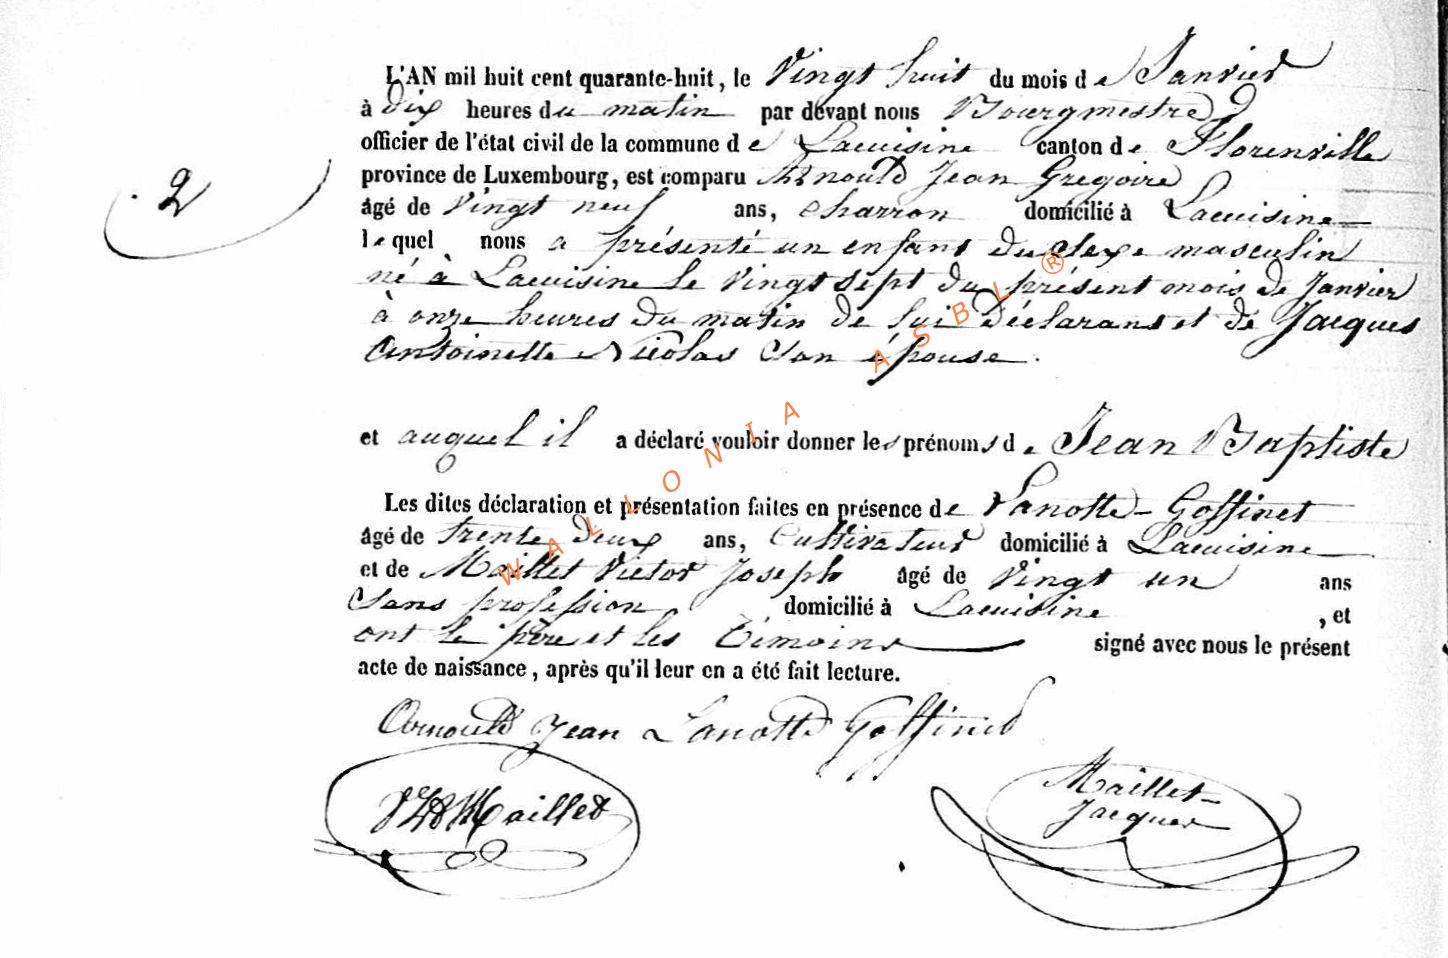 L'AN mil huit cent quarante-huit, le Vingt huit du mois de Janvier
à dix heures du matin par devant nous Bourgmestre
officier de l'état civil de la commune de Lacuisine canton de Florenville
province de Luxembourg, est comparu Arnould Jean Gregoire
2
âgé de Vingt neuf ans, charron domicilié à Lacuisine
lequel nous a présenté un enfant du sexe masculin
né à Lacuisine le Vingt sept du présent mois de Janvier
à onze heures du matin de lui déclarant et de Jacques
Antoinette Nicolas son épouse.
et auquel il a déclaré vouloir donner les prénoms de Jean Baptiste
Les dites déclaration et présentation faites en présence de Lanotte-Goffinet
âgé de trente deux ans, Cultivateur domicilié à Lacuisine
et de Maillet Victor Joseph âgé de Vingt un ans
sans profession domicilié à Lacuisine , et
ont le père et les témoins signé avec nous le présent
acte de naissance, après qu'il leur en a été fait lecture.
Arnould Jean Lanotte Goffinet
Maillet
Maillet-
Jacques
WALLONIA ASBL ®